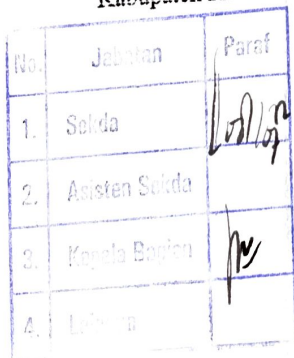 Kabupaten
No. Jabatan Paraf
1. Sekda
2. Asisten Sekda
3. Kepala Bagian
4.